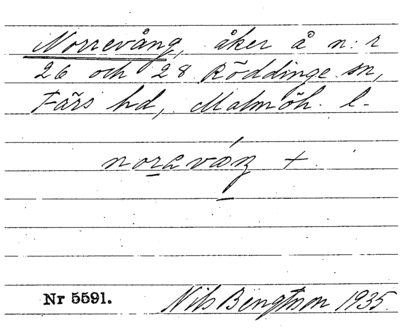 Norrevång, åker å n:r
26 och 28 Röddinge sn,
Färs hd, Malmöh. l.
+
Nr 5591. Nils Bengtson 1935.